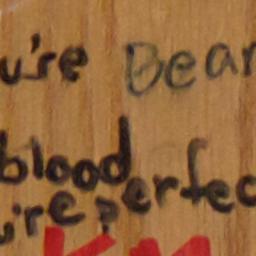 u're Bear
blood
u're perfec
KM